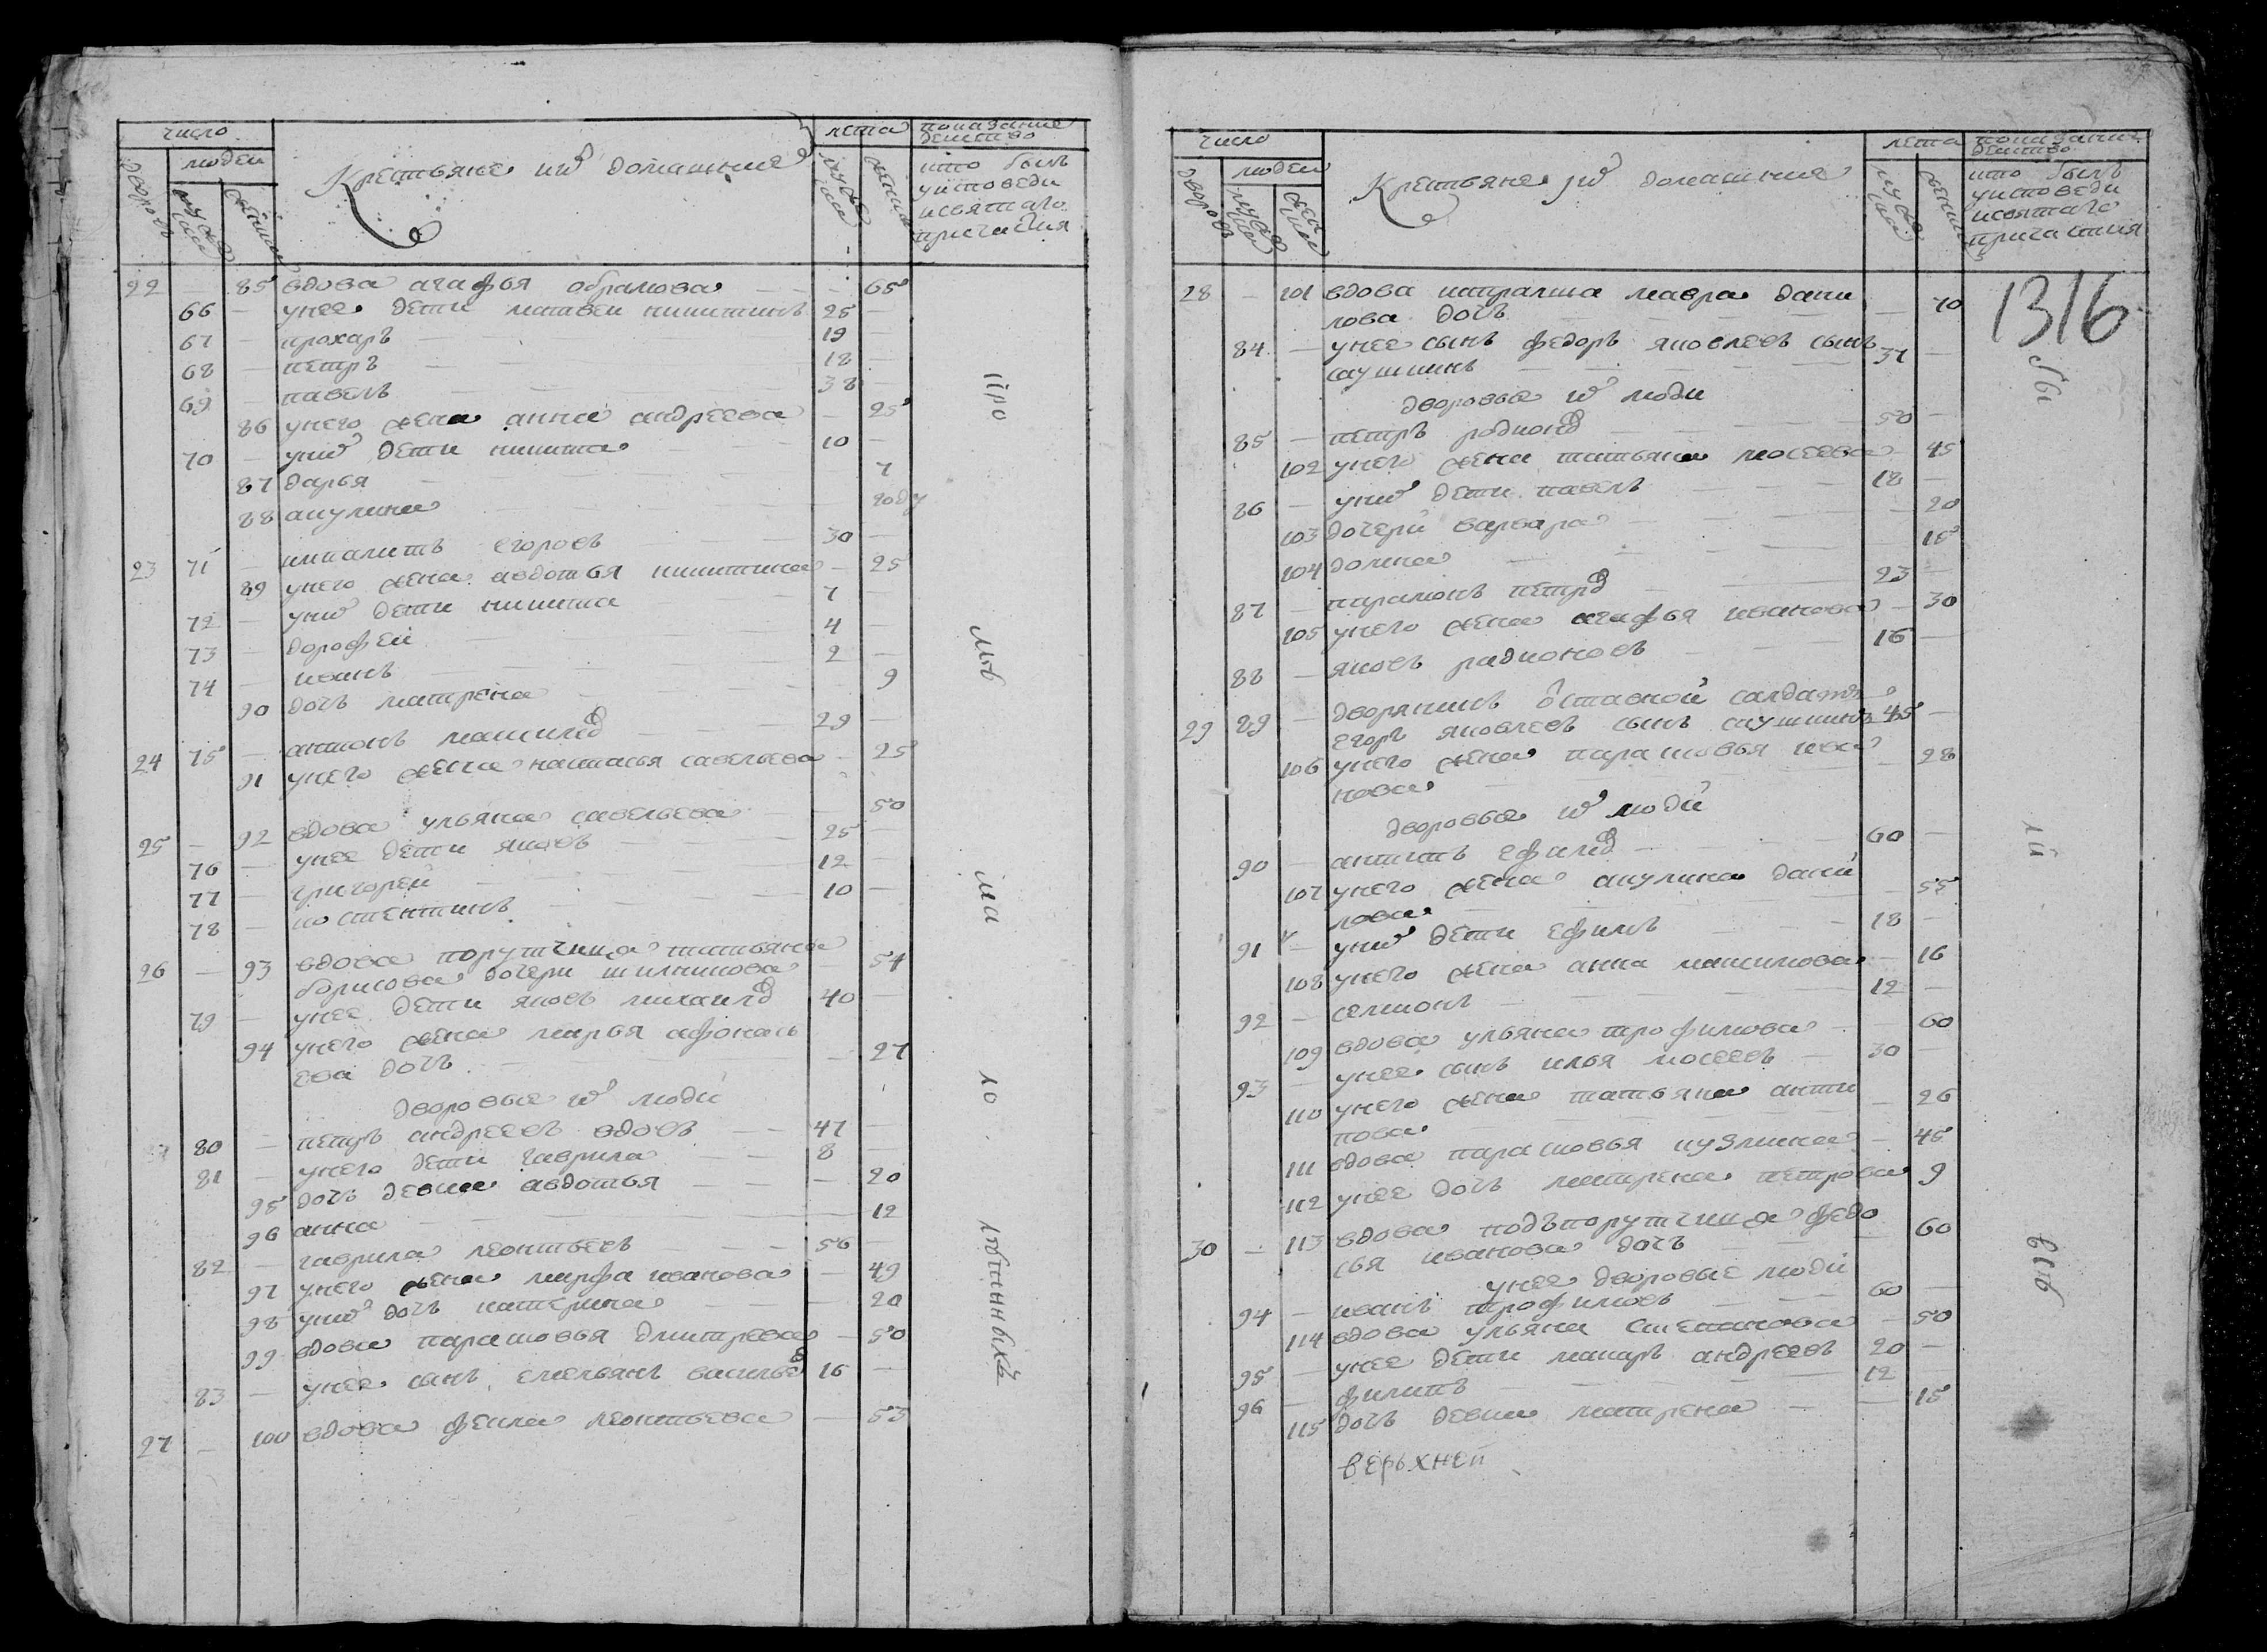 число
лета
показание действо
дворовъ
людей
мужеска
женска
Крестьяне и ихъ домашние
мужеска
женска
кто былъ
уисповеди
исвятаго
причастия
22 85 вдова агафья обрамова 65
66 унее дети матвеи никитинъ 25
67 прохаръ 19
68 петръ 18
69 павелъ 38
86 унего жена анна андреева 25
70 уних дети никита 10
87 дарья 7
88 акулина году
23 71 ипалитъ егоровъ 30
89 унего жена авдотья никитина 25
72 уних дети никита 7
73 дорофеи 4
74 иванъ 2
90 дочь матрена 9
24 75 антонъ максимов 29
91 унего жена настасья савельева 25
25 92 вдова ульяна савельева 50
76 унее дети яковъ 25
77 григореи 12
78 костентинъ 10
26 93 вдова порутчица татьяна
борисова дочери 57
79 унее дети яковъ михаилов 40
94 унего жена марья афонась
ева дочь 27
дворовые их люди
80 петръ андреевъ вдовъ 47
81 унего дети гаврила 8
95 дочь девка авдотья 20
96 анна 12
82 гаврила леонтьевъ 56
97 унего жена марфа иванова 49
98 уних дочь катерина 20
99 вдова парасковья дмитрева 50
83 унее сынъ емельянъ васильев 16
27 100 вдова фекла леонтьева 53
про
мъ
ма
ю
число
лета
показание действо
дворовъ
людей
мужеска
женска
Крестьяне и ихъ домашние
мужеска
женска
кто былъ
уисповеди
исвятаго
причастия
1316
28 101 вдова капралша мавра дани
лова дочь 70
84 унее сынъ федоръ яковлевъ сынъ
саушкинъ 37
дворовыа их люди
85 петръ родионов 50
102 унего жена татьяна мосеева 45
86 уних дети павелъ 18
103 дочери варвара 20
104 домна 15
87 парамонъ петров 23
105 унего жена агафья иванова 30
88 яковъ радионовъ 16
дворянинъ отставной салдатъ
29 89 егоръ яковлевъ сынъ саушкинъ 45
106 унего жена парасковья ива
нова 28
дворовыа их люди
90 антипъ ефимов 60
107 унего жена акулина дани
лова 55
91 уних дети ефимъ 18
108 унего жена анна максимова 16
92 семионъ 12
109 вдова ульяна трофимова 60
93 унее сынъ илья мосеевъ 30
110 унего жена татьяна анти
пова 26
111 вдова парасковья кузмина 45
112 унее дочь матрена петрова 9
30 113 вдова подъпорутчица федо
сья иванова дочь 60
унее дворовые люди
94 иванъ трофимовъ 60
114 вдова ульяна степанова 50
95 унее дети макаръ андреевъ 20
96 филипъ 12
115 дочь девка матрена 15
верьхней